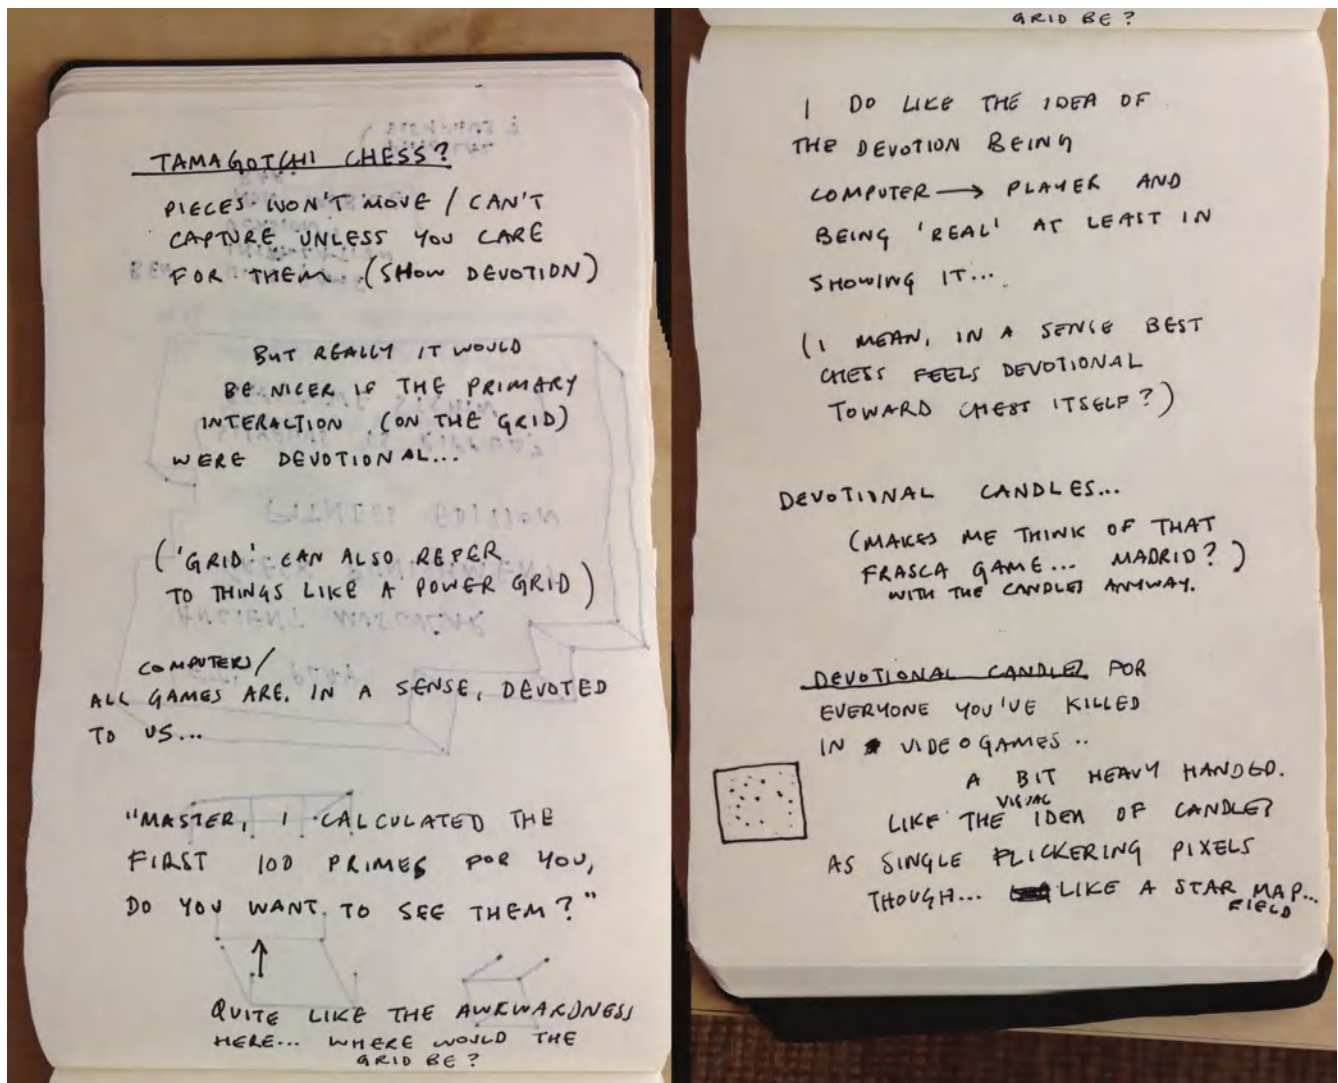 TAMAGOTCHI CHESS?
PIECES WON'T MOVE / CAN'T
CAPTURE UNLESS YOU CARE
FOR THEM. (SHOW DEVOTION)
BUT REALLY IT WOULD
BE NICER IF THE PRIMARY
INTERACTION (ON THE GRID)
WERE DEVOTIONAL...
('GRID' CAN ALSO REFER
TO THINGS LIKE A POWER GRID)
COMPUTERS/
ALL GAMES ARE, IN A SENSE, DEVOTED
TO US...
"MASTER, I CALCULATED THE
FIRST 100 PRIMES FOR YOU,
DO YOU WANT TO SEE THEM?"
↑
QUITE LIKE THE AWKWARDNESS
HERE... WHERE WOULD THE
GRID BE?
GRID BE?
I DO LIKE THE IDEA OF
THE DEVOTION BEING
COMPUTER → PLAYER AND
BEING 'REAL' AT LEAST IN
SHOWING IT...
(I MEAN, IN A SENSE BEST
CHESS FEELS DEVOTIONAL
TOWARD CHESS ITSELF?)
DEVOTIONAL CANDLES...
(MAKES ME THINK OF THAT
FRASCA GAME... MADRID?)
WITH THE CANDLES ANYWAY.
DEVOTIONAL CANDLES FOR
EVERYONE YOU'VE KILLED
IN VIDEOGAMES..
A BIT HEAVY HANDED.
LIKE THE VISUAL IDEA OF CANDLES
AS SINGLE FLICKERING PIXELS
THOUGH... LIKE A STAR MAP...
FIELD